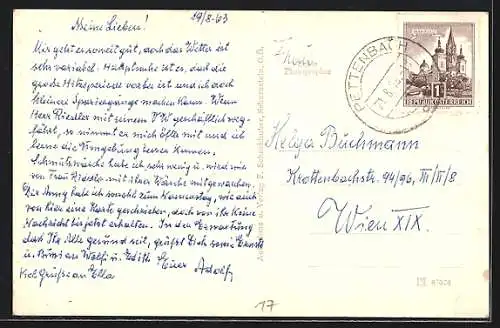 19/8-63
Meine Lieben!
Mir geht es soweit gut, doch das Wetter ist
sehr variabel. Hauptsache ist es, daß die
große Hitzeperiode vorbei ist und ich noch
kleinere Spaziergänge machen kann. Wenn
Herr Riedler mit seinem VW geschäftlich weg-
fährt, so nimmt er mich öfter mit und ich
lerne die Umgebung besser kennen.
Schmutzwäsche habe ich sehr wenig u. wird mir
von Frau Riedler mit ihrer Wäsche mitgewaschen.
Die Anny habe ich sowohl zum Namenstag, wie auch
von hier eine Karte geschrieben, doch von ihr keine
Nachricht bis jetzt erhalten. In der Erwartung
daß Ihr Alle gesund seit, grüßt Dich sowie
u. Wolfi u. Edith Euer Adolf
Grüße an Ella
Photographie
PETTENBACH
REPUBLIK ÖSTERREICH
Helga Buchmann
Krottenbachstr. 94/96, III/II/8
Wien XIX.
17